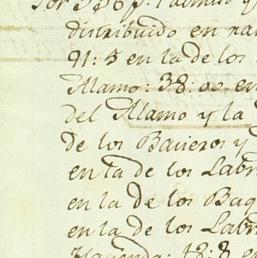 distribuido en
91: 5 en la de los
Alamo: 38: en
del Alamo y la
de los Baqueros y
en la de los Labr
en la de los Baq
en la de los Labr
Hacienda: 18: 8 en